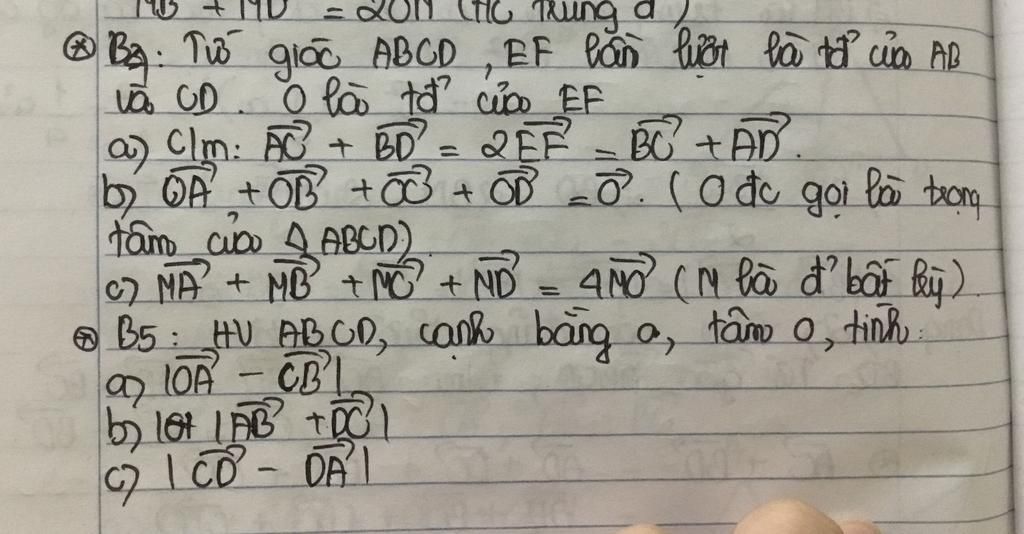 MB + MD = 2ON (HC trung đ)
⊛ B4: Tứ giác ABCD, EF lần lượt là tđ² của AB
và CD. O là tđ² của EF
a) C/m: AC⃗ + BD⃗ = 2EF⃗ = BC⃗ + AD⃗.
b) OA⃗ + OB⃗ + OC⃗ + OD⃗ = O⃗. (O đc gọi là trọng
tâm của ◊ ABCD)
c) MA⃗ + MB⃗ + MC⃗ + MD⃗ = 4MO⃗ (M là đ² bất kỳ)
⊛ B5: HV ABCD, cạnh bằng a, tâm O, tính:
a) |OA⃗ - CB⃗|
b) |AB⃗ + DC⃗|
c) |CD⃗ - DA⃗|